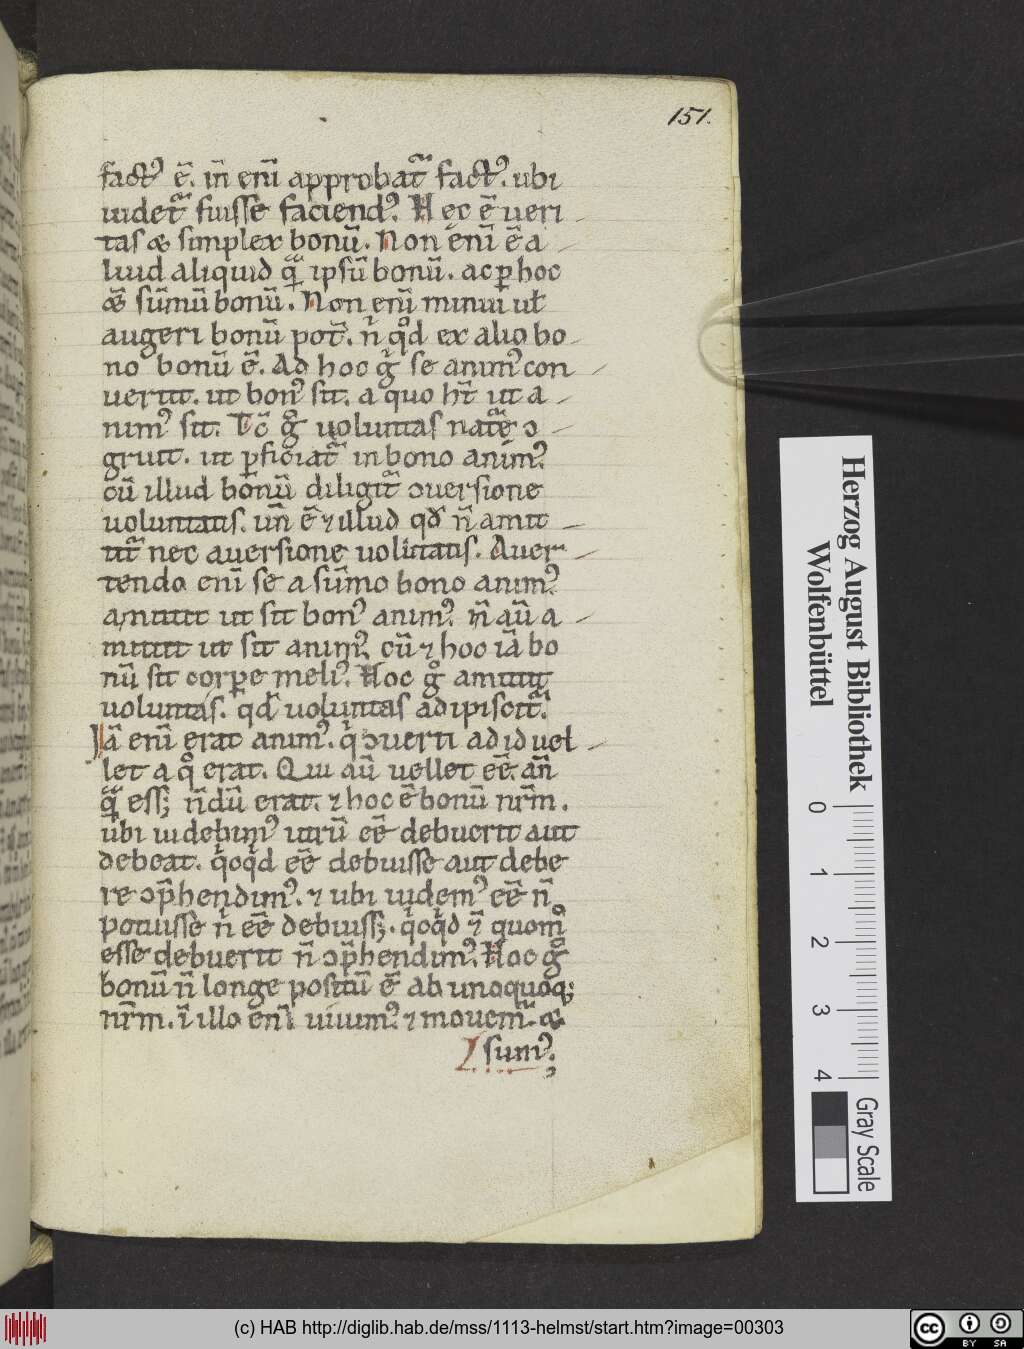 151.
factꝰ ē. iñ eni᷑ approbat᷑ factꝰ. ubi
uidet᷑ fuisse faciendꝰ. Hec ē ueri
tas & simplex bonū. Non eni᷑ ē a
liuid aliquid q̄ ipsū bonū. ac ꝑ hoc
& sūmū bonū. Non eni᷑ minui ul̵
augeri bonū pot̄. ñ qd̊ ex alio bo
no bonū ē. Ad hoc g̊ se animꝰ con
uertit. ut bonꝰ sit. a quo ht̄ ut a
nimꝰ sit. Tc̄ g̊ uoluntas nat᷑ę ↄ
gruit. ut ꝑficiat᷑ in bono animꝰ
cū illud bonū diligit᷑ ↄuersione
uoluntatis. uñ ē ⁊ illud qd̄ ñ amit
tit᷑ nec auersione uolūtatis. Auer
tendo eni᷑ se a sūmo bono animꝰ
amittit ut sit bonꝰ animꝰ. ñ aū a
mittit ut sit animꝰ. cū ⁊ hoc iā bo
nū sit corꝑe meliꝰ. Hoc g̊ amittit
uoluntas. qd̄ uoluntas adipiscit᷑.
Iā eni᷑ erat animꝰ. q̇ ↄuerti ad id uel
let a q̊ erat. Qui aū uellet eē. añ
q̄ eēt; ñdū erat. ⁊ hoc ē bonū nr̄m.
ubi uidebimꝰ utrū eē debuerit aut
debeat. q̇cq̇d eē debuisse aut debe
re ↄp̄hendimꝰ. ⁊ ubi uidemꝰ eē ñ
potuisse ñ eē debuiss;. q̇cq̇d ⁊ quom̊
esse debuerit ñ ↄp̄hendimꝰ. Hoc g̊
bonū ñ longe positū ē ab unoquoq;
nr̄m. ī illo eni᷑ uiuimꝰ. ⁊ mouem᷑. &
sumꝰ.
Herzog August Bibliothek
Wolfenbüttel
0 1 2 3 4
Gray Scale
(c) HAB http://diglib.hab.de/mss/1113-helmst/start.htm?image=00303
cc BY SA